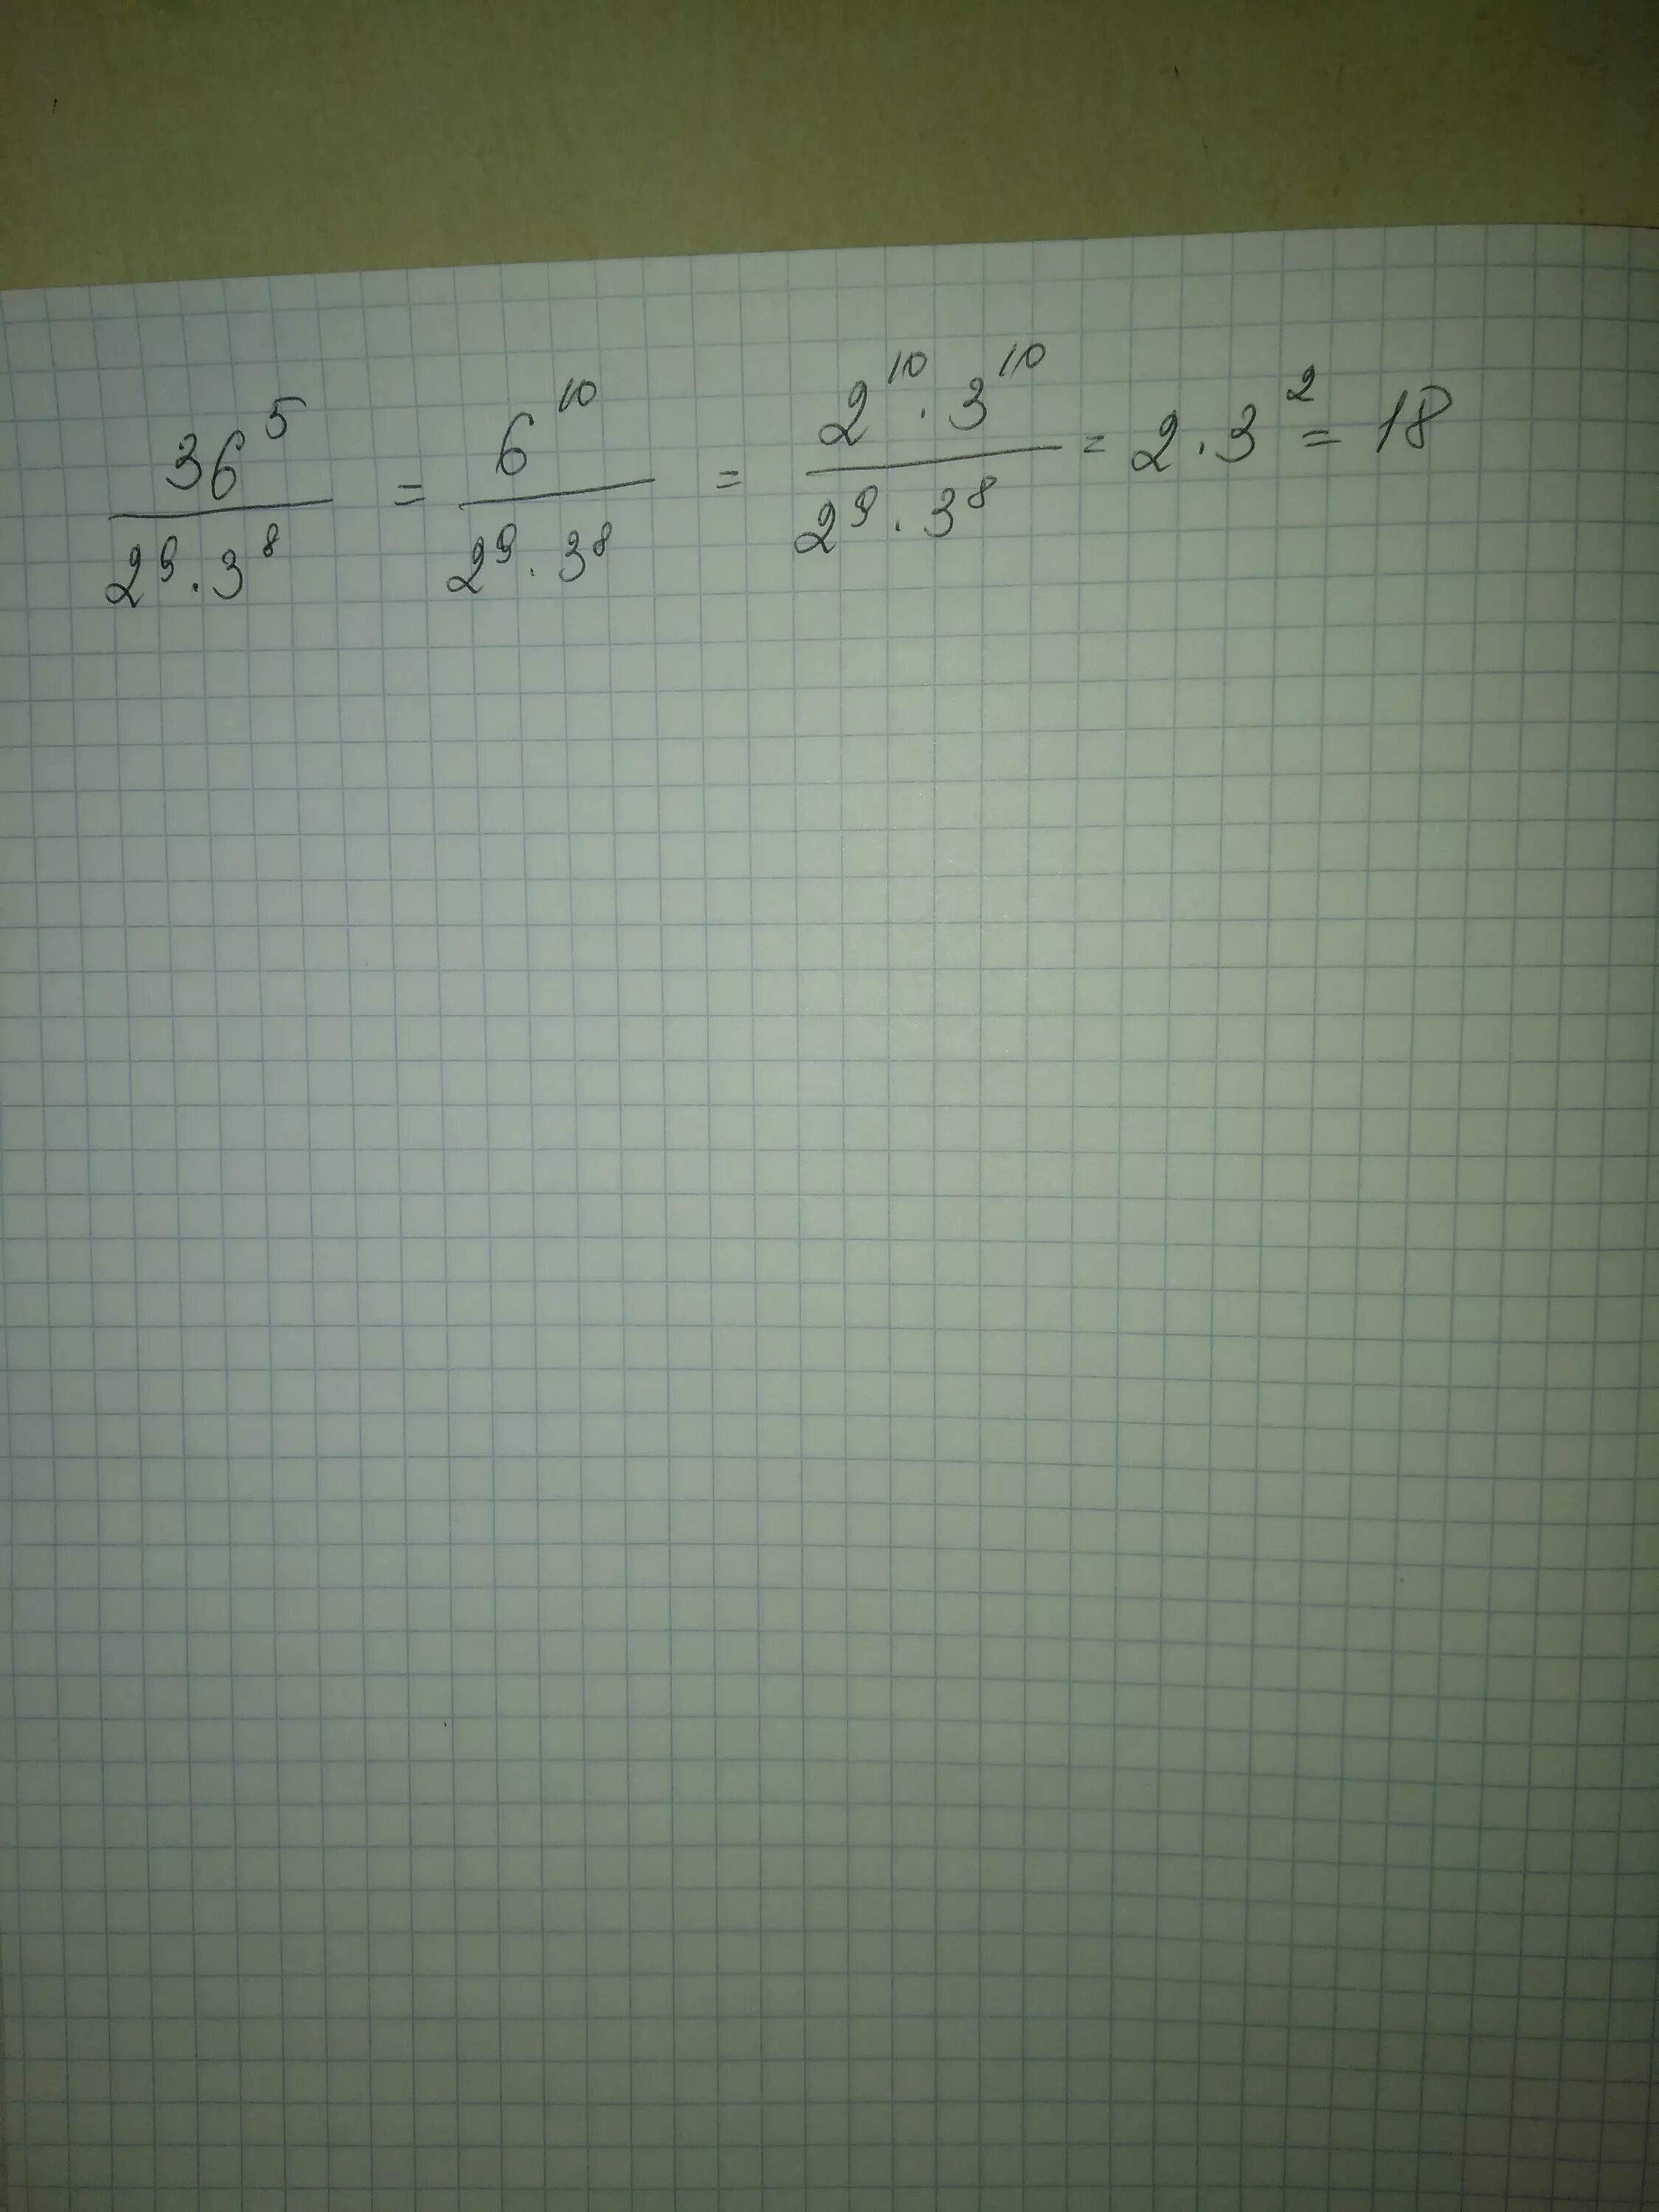 36⁵/(2⁹·3⁸) = 6¹⁰/(2⁹·3⁸) = (2¹⁰·3¹⁰)/(2⁹·3⁸) = 2·3² = 18